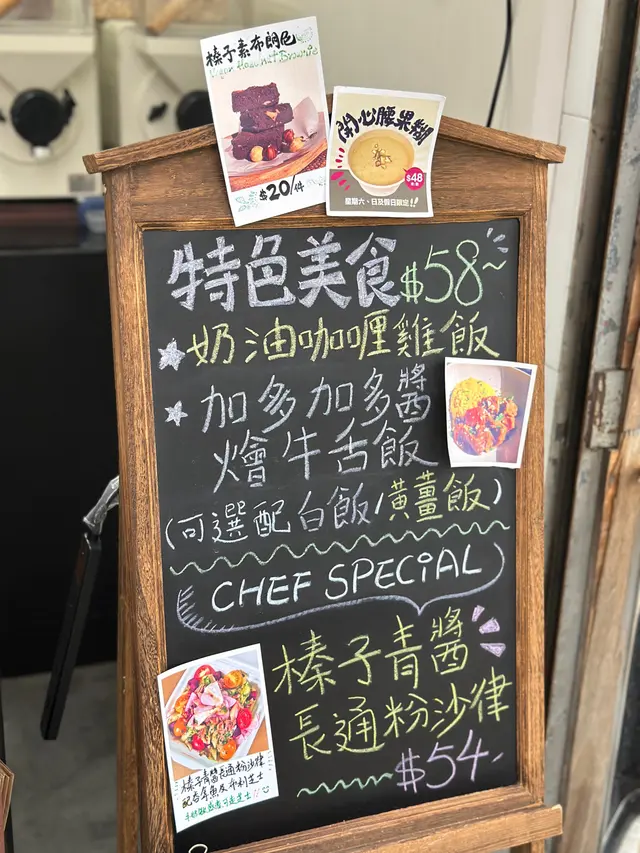 榛子素布朗尼
Vegan Hazelnut Brownie
$20/件
開心腰果糊
$48
星期六、日及假日限定!!
特色美食$58~
奶油咖喱雞飯
加多加多醬
燴牛舌飯
(可選配白飯/黃薑飯)
CHEF SPECIAL
榛子青醬
長通粉沙律
$54
榛子青醬長通粉沙律